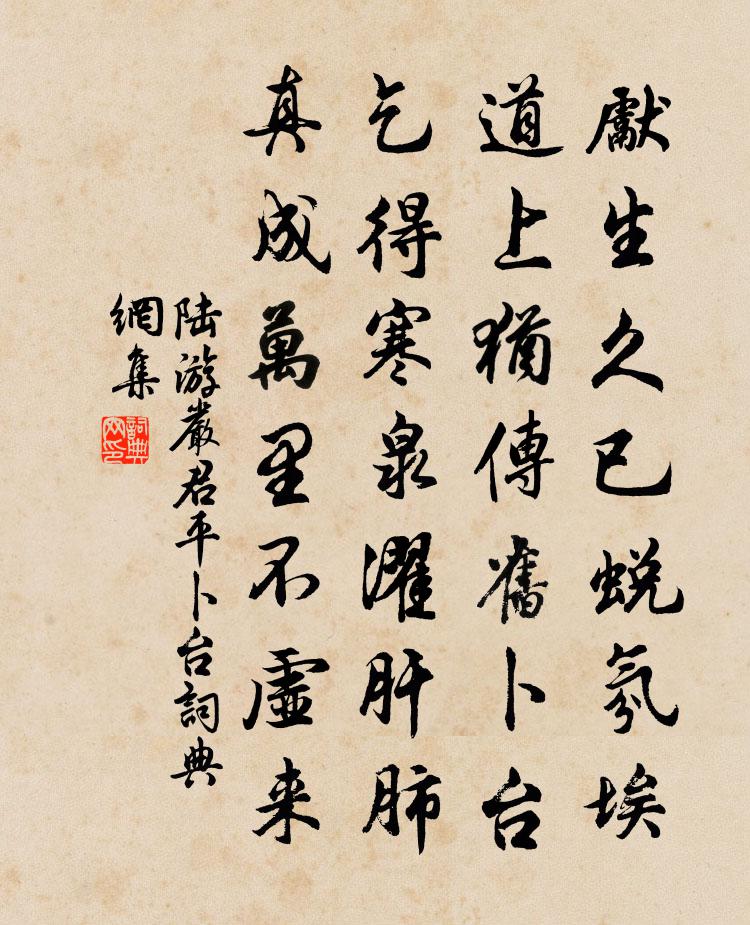 獻生久已蜕氛埃
道上猶傳舊卜台
乞得寒泉濯肝肺
真成萬里不虛来
陆游嚴君平卜台詞典
網集
詞典
网印